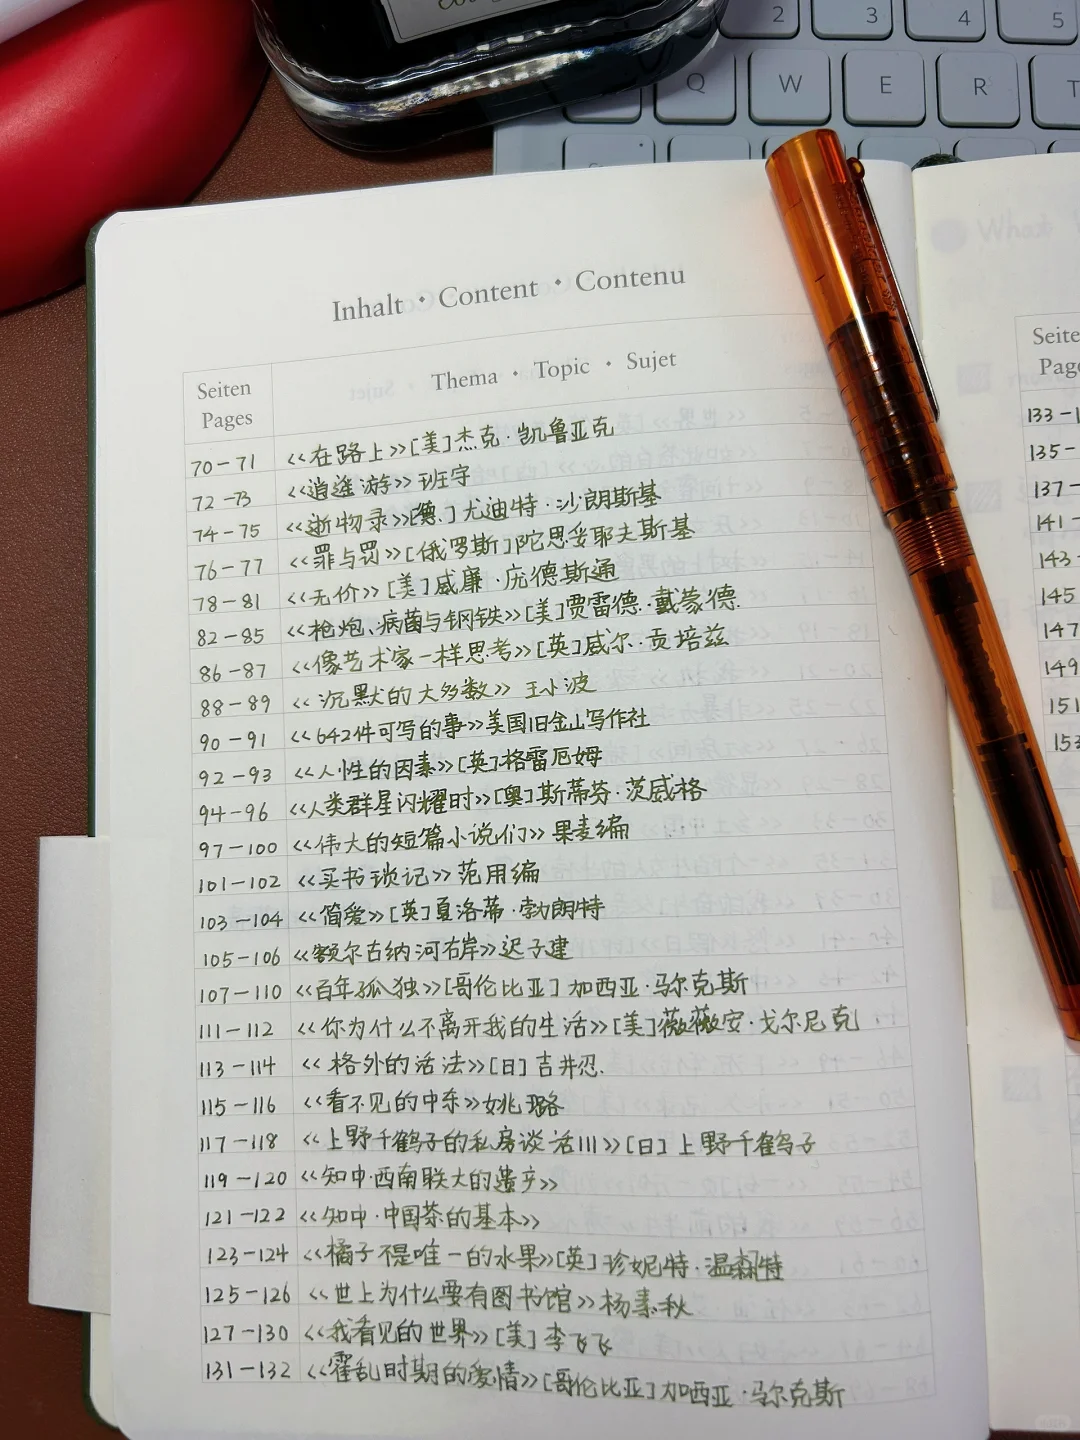 2 3 4 5
Q W E R T
Inhalt · Content · Contenu
Seiten Pages Thema · Topic · Sujet
70-71 《在路上》[美]杰克·凯鲁亚克
72-73 《逍遥游》班宇
74-75 《逝物录》[德]尤迪特·沙朗斯基
76-77 《罪与罚》[俄罗斯]陀思妥耶夫斯基
78-81 《无价》[美]威廉·庞德斯通
82-85 《枪炮、病菌与钢铁》[美]贾雷德·戴蒙德.
86-87 《像艺术家一样思考》[英]威尔·贡培兹
88-89 《沉默的大多数》王小波
90-91 《642件可写的事》美国旧金山写作社
92-93 《人性的因素》[英]格雷厄姆
94-96 《人类群星闪耀时》[奥]斯蒂芬·茨威格
97-100 《伟大的短篇小说们》果麦编
101-102 《买书琐记》范用编
103-104 《简爱》[英]夏洛蒂·勃朗特
105-106 《额尔古纳河右岸》迟子建
107-110 《百年孤独》[哥伦比亚]加西亚·马尔克斯
111-112 《你为什么不离开我的生活》[美]薇薇安·戈尔尼克
113-114 《格外的活法》[日]吉井忍.
115-116 《看不见的中东》姚璐
117-118 《上野千鹤子的私房谈话III》[日]上野千鹤子
119-120 《知中·西南联大的遗产》
121-122 《知中·中国茶的基本》
123-124 《橘子不是唯一的水果》[英]珍妮特·温森特
125-126 《世上为什么要有图书馆》杨素秋
127-130 《我看见的世界》[美]李飞飞
131-132 《霍乱时期的爱情》[哥伦比亚]加西亚·马尔克斯
What
Seite
Page
133-1
135-
137-
141-
143-
145
147
149
151
153